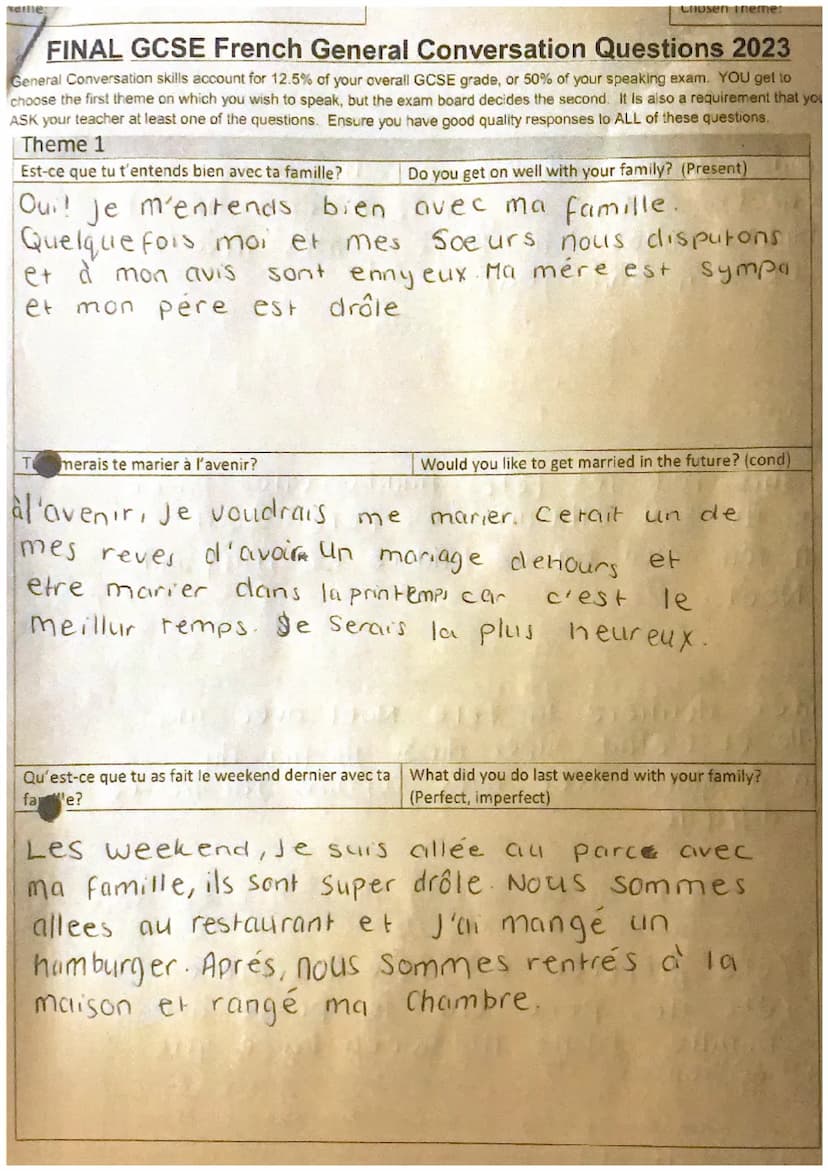 Name:
Chosen Theme:
FINAL GCSE French General Conversation Questions 2023
General Conversation skills account for 12.5% of your overall GCSE grade, or 50% of your speaking exam. YOU get to
choose the first theme on which you wish to speak, but the exam board decides the second. It is also a requirement that you
ASK your teacher at least one of the questions. Ensure you have good quality responses to ALL of these questions.
Theme 1
Est-ce que tu t'entends bien avec ta famille?
Do you get on well with your family? (Present)
Oui! je m'entends bien avec ma famille.
Quelquefois moi et mes soeurs nous disputons
et à mon avis sont ennyeux. Ma mére est sympa
et mon pére est drôle
merais te marier à l'avenir?
Would you like to get married in the future? (cond)
àl'avenir, Je voudrais me marier. Cerait un de
mes reves d'avoir un mariage dehours et
etre marier dans la printemps car c'est le
meillur temps. Je serais la plus heureux.
Qu'est-ce que tu as fait le weekend dernier avec ta
What did you do last weekend with your family?
(Perfect, imperfect)
Les weekend, Je suis allée au parc avec
ma famille, ils sont super drôle. Nous sommes
allees au restaurant et J'ai mangé un
hamburger. Aprés, nous sommes rentrés à la
maison et rangé ma chambre.